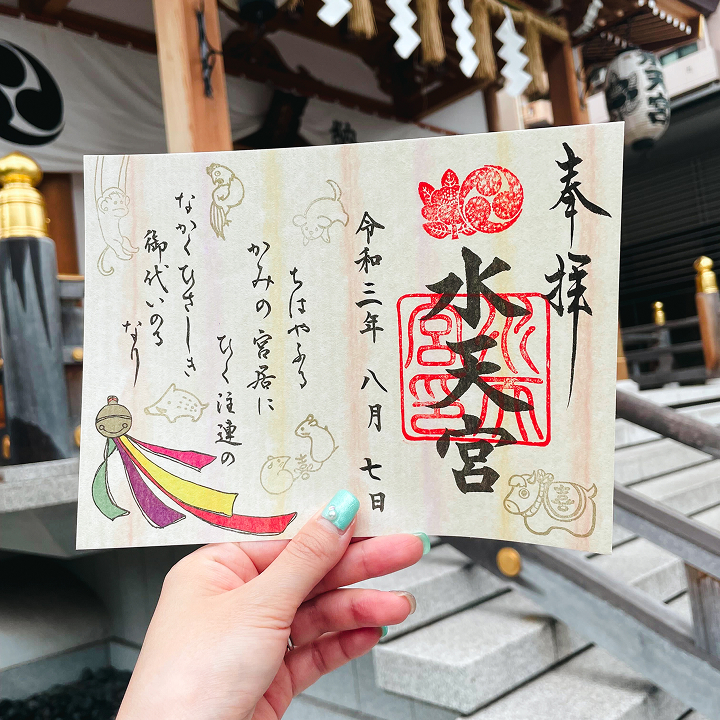 奉拝
水天宮
令和三年 八月 七日
ちはやふる
かみの宮居に
ひく注連の
なかくひさしき
御代いのる
なり
喜
天宮